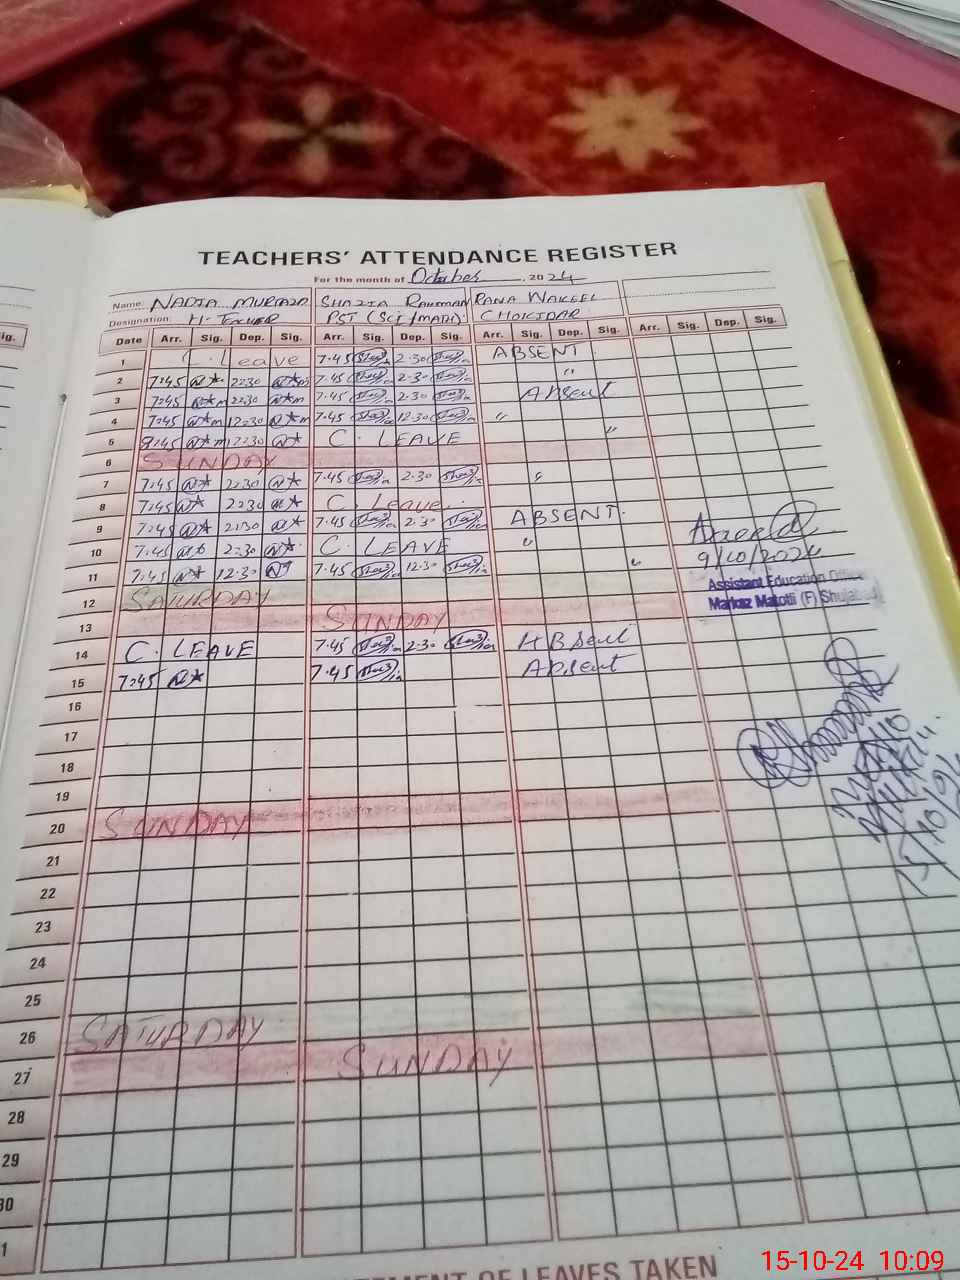 TEACHERS' ATTENDANCE REGISTER
For the month of October, 2024
Name: NADIA MURTAZA SHAZIA RAHMAN RANA WAKEEL
Designation: H-TEACHER PST (SCI/MATH) CHOKIDAR
Date Arr. Sig. Dep. Sig. Arr. Sig. Dep. Sig. Arr. Sig. Dep. Sig. Arr. Sig. Dep. Sig.
1 C. Leave 7.45 2.30 ABSENT
2 7:45 2:30 7.45 2.30 "
3 7:45 2:30 7.45 2.30 Absent
4 7:45 12:30 7.45 12.30 "
5 12:30 C. LEAVE "
6 SUNDAY
7 7:45 2:30 7.45 2.30 "
8 7:45 2:30 C. Leave
9 7:45 2:30 7.45 2.30 ABSENT
10 7.45 2.30 C. LEAVE "
11 7.45 12.30 7.45 12.30 "
12 SATURDAY
13 SUNDAY
14 C. LEAVE 7.45 2.30 Absent
15 7:45 7.45 Absent
16
17
18
19
20 SUNDAY
21
22
23
24
25
26 SATURDAY
27 SUNDAY
28
29
30
1
9/10/2024
Assistant Education
Markaz Matotli (F) Shujabad
15/10/24
OF LEAVES TAKEN
15-10-24 10:09